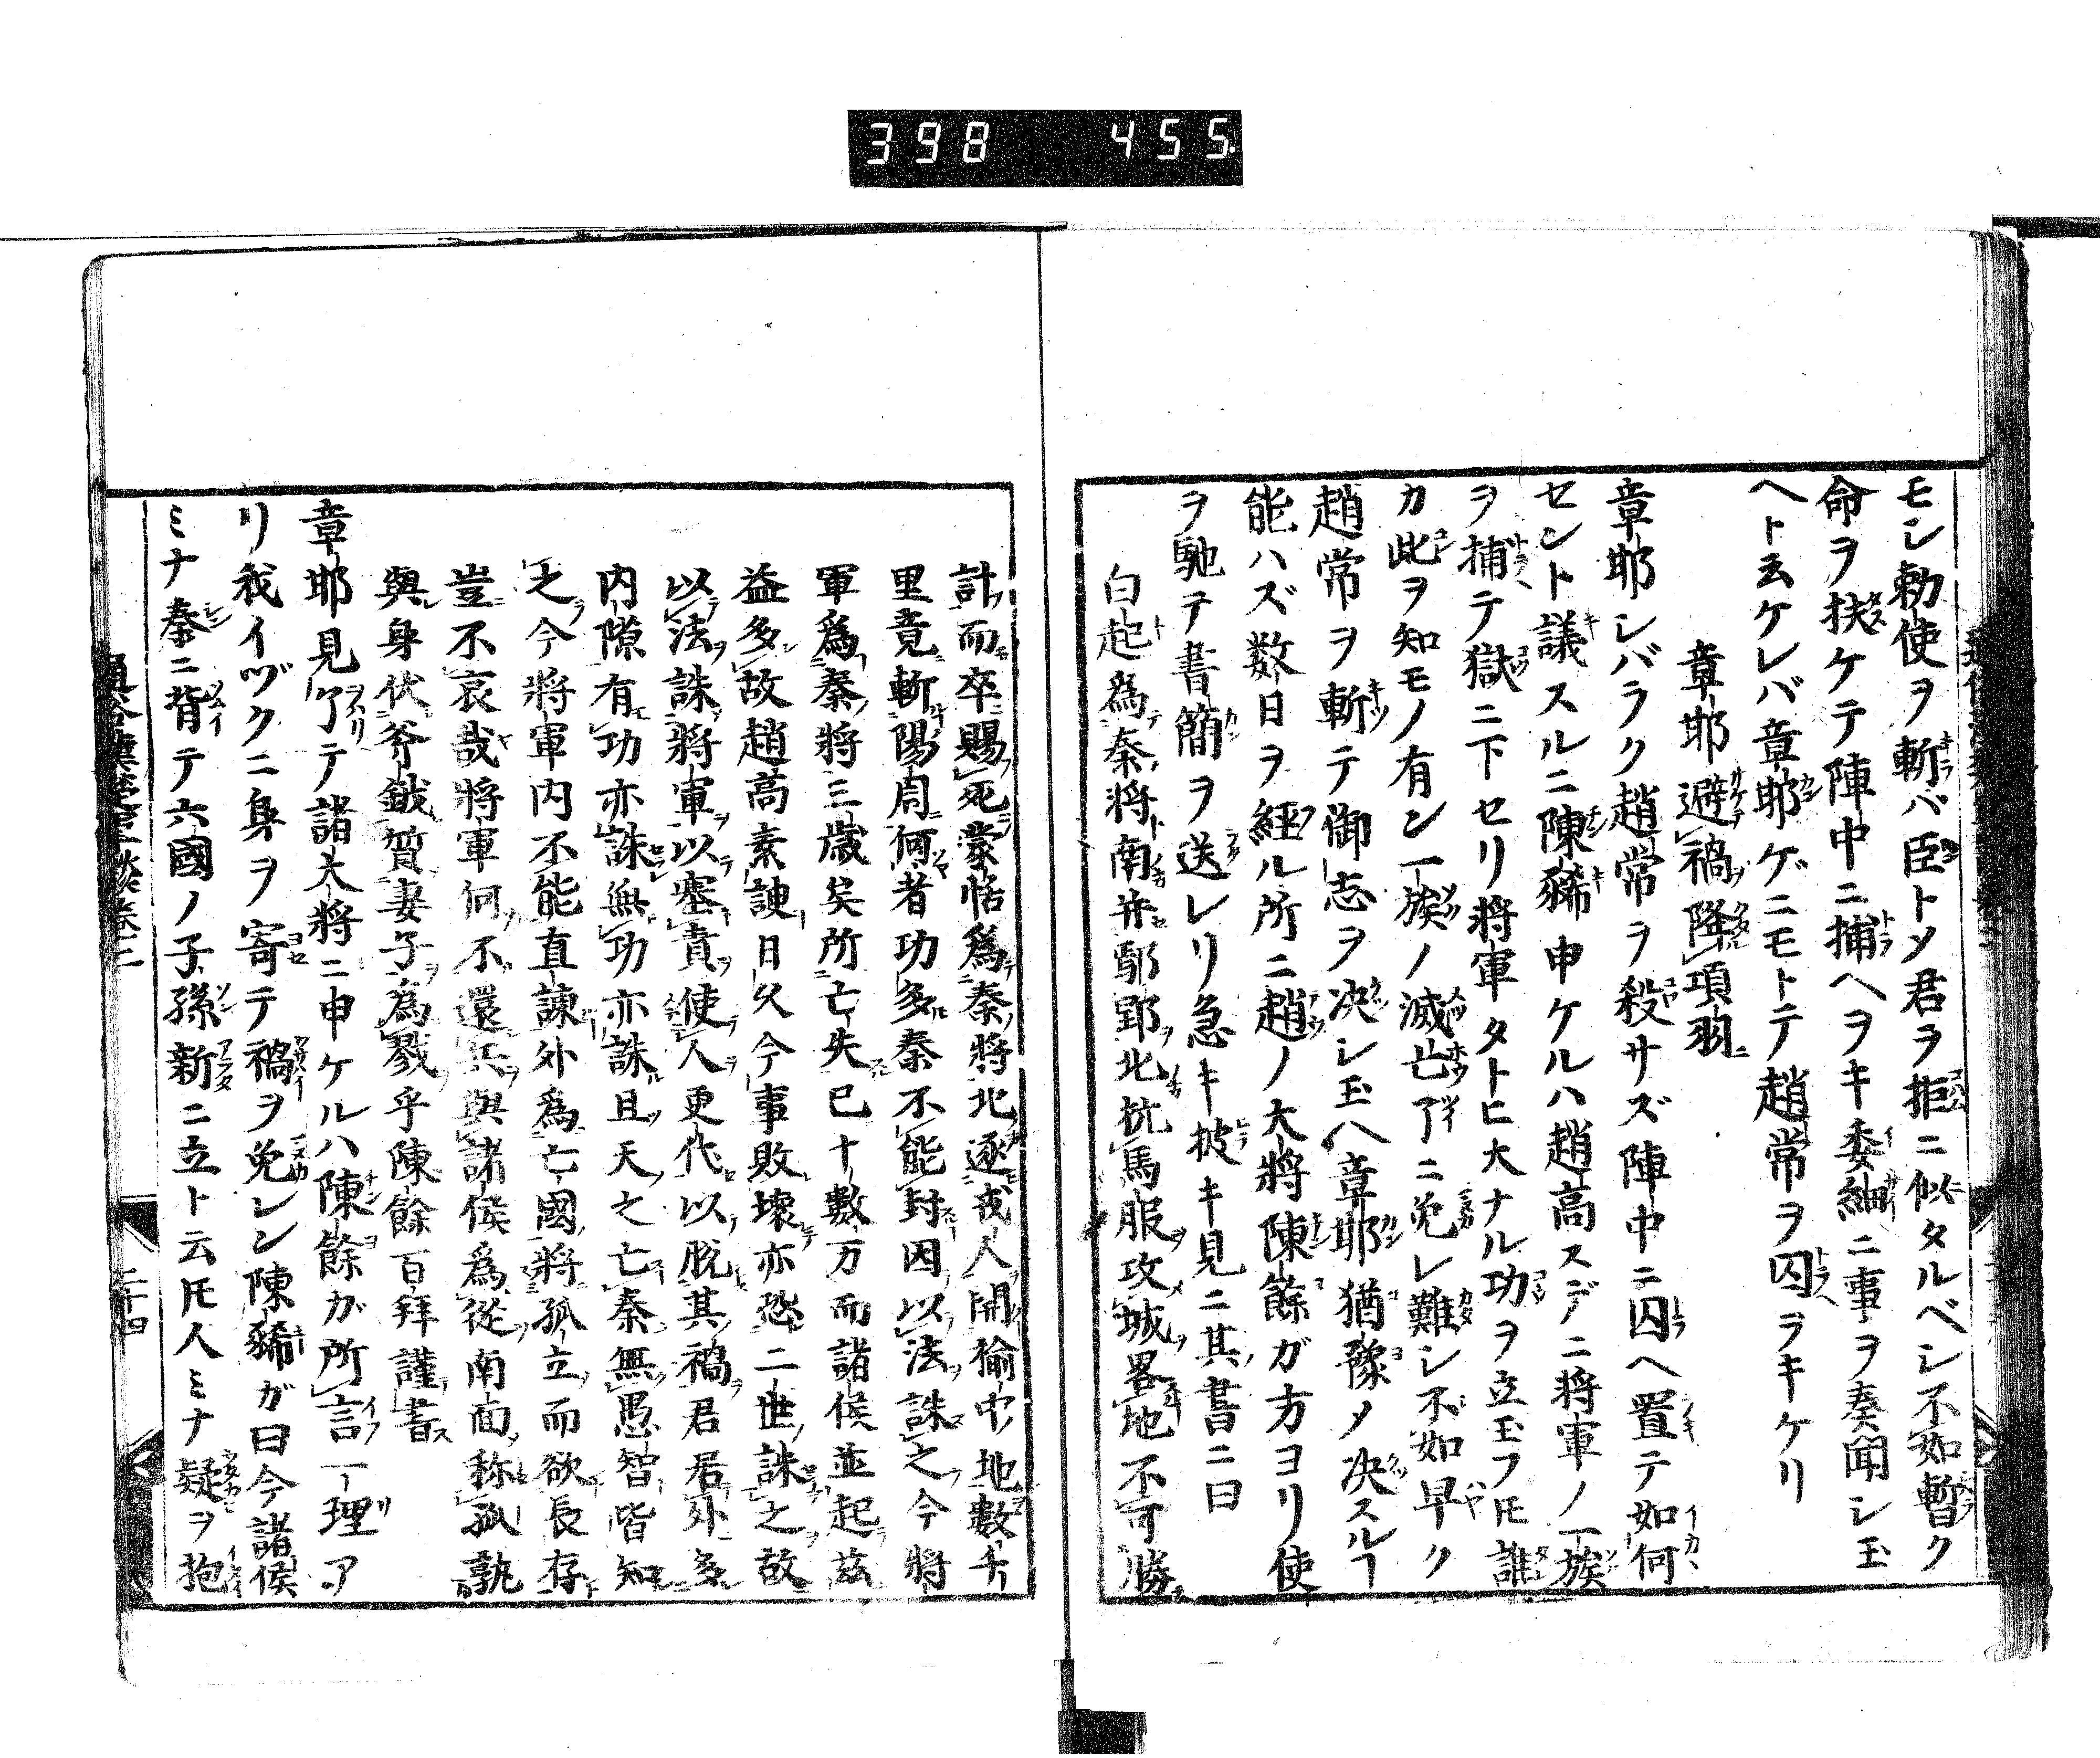 398 455
モン勅使ヲ斬バ臣トメ君ヲ拒ニ似タルベシ不如暫ク
命ヲ扶ケテ陣中ニ捕ヘヲキ委細ニ事ヲ奏聞シ玉
ヘト云ケレバ章邯ゲニモトテ趙常ヲ囚ラキケリ
章邯避禍降項羽
章邯シバラク趙常ヲ殺サズ陣中ニ囚ヘ置テ如何
セント議スルニ陳豨申ケルハ趙高スデニ将軍ノ一族
ヲ捕テ獄ニ下セリ将軍タトヒ大ナル功ヲ立玉フ𪜈誰
カ此ヲ知モノ有ン一族ノ滅亡了ニ免レ難シ不如早ク
趙常ヲ斬テ御志ヲ决シ玉ヘ章邯猶豫メ决スルヿ
能ハズ数日ヲ經ル所ニ趙ノ大將陳餘ガ方ヨリ使
ヲ馳テ書簡ヲ送レリ急キ披キ見ニ其書ニ曰
白起爲秦將南并鄢郢北坑馬服攻城畧地不可勝
計而卒賜死蒙恬爲秦將北逐戎人開楡中地數千
里竟斬陽周何者功多秦不能封因以法誅之今將
軍爲秦將三歳矣所亡失已十數万而諸侯並起茲
益多故趙高素諛日久今事敗壞亦恐二世誅之故
以法誅將軍以塞責使人更代以脱其禍君居外多
内隙有功亦誅無功亦誅且天之亡秦無愚智皆知
之今將軍内不能直諫外爲亡國將孤立而欲長存
豈不哀哉將軍何不還兵與諸侯爲從南面称孤孰
與身伏斧鉞質妻子爲戮乎陳餘百拜謹書
章邯見了テ諸大將ニ申ケルハ陳餘ガ所言一理ア
リ我イヅクニ身ヲ寄テ禍ヲ免レン陳豨ガ曰今諸侯
ミナ秦ニ背テ六國ノ子孫新ニ立ト云𪜈人ミナ疑ヲ抱
二十四